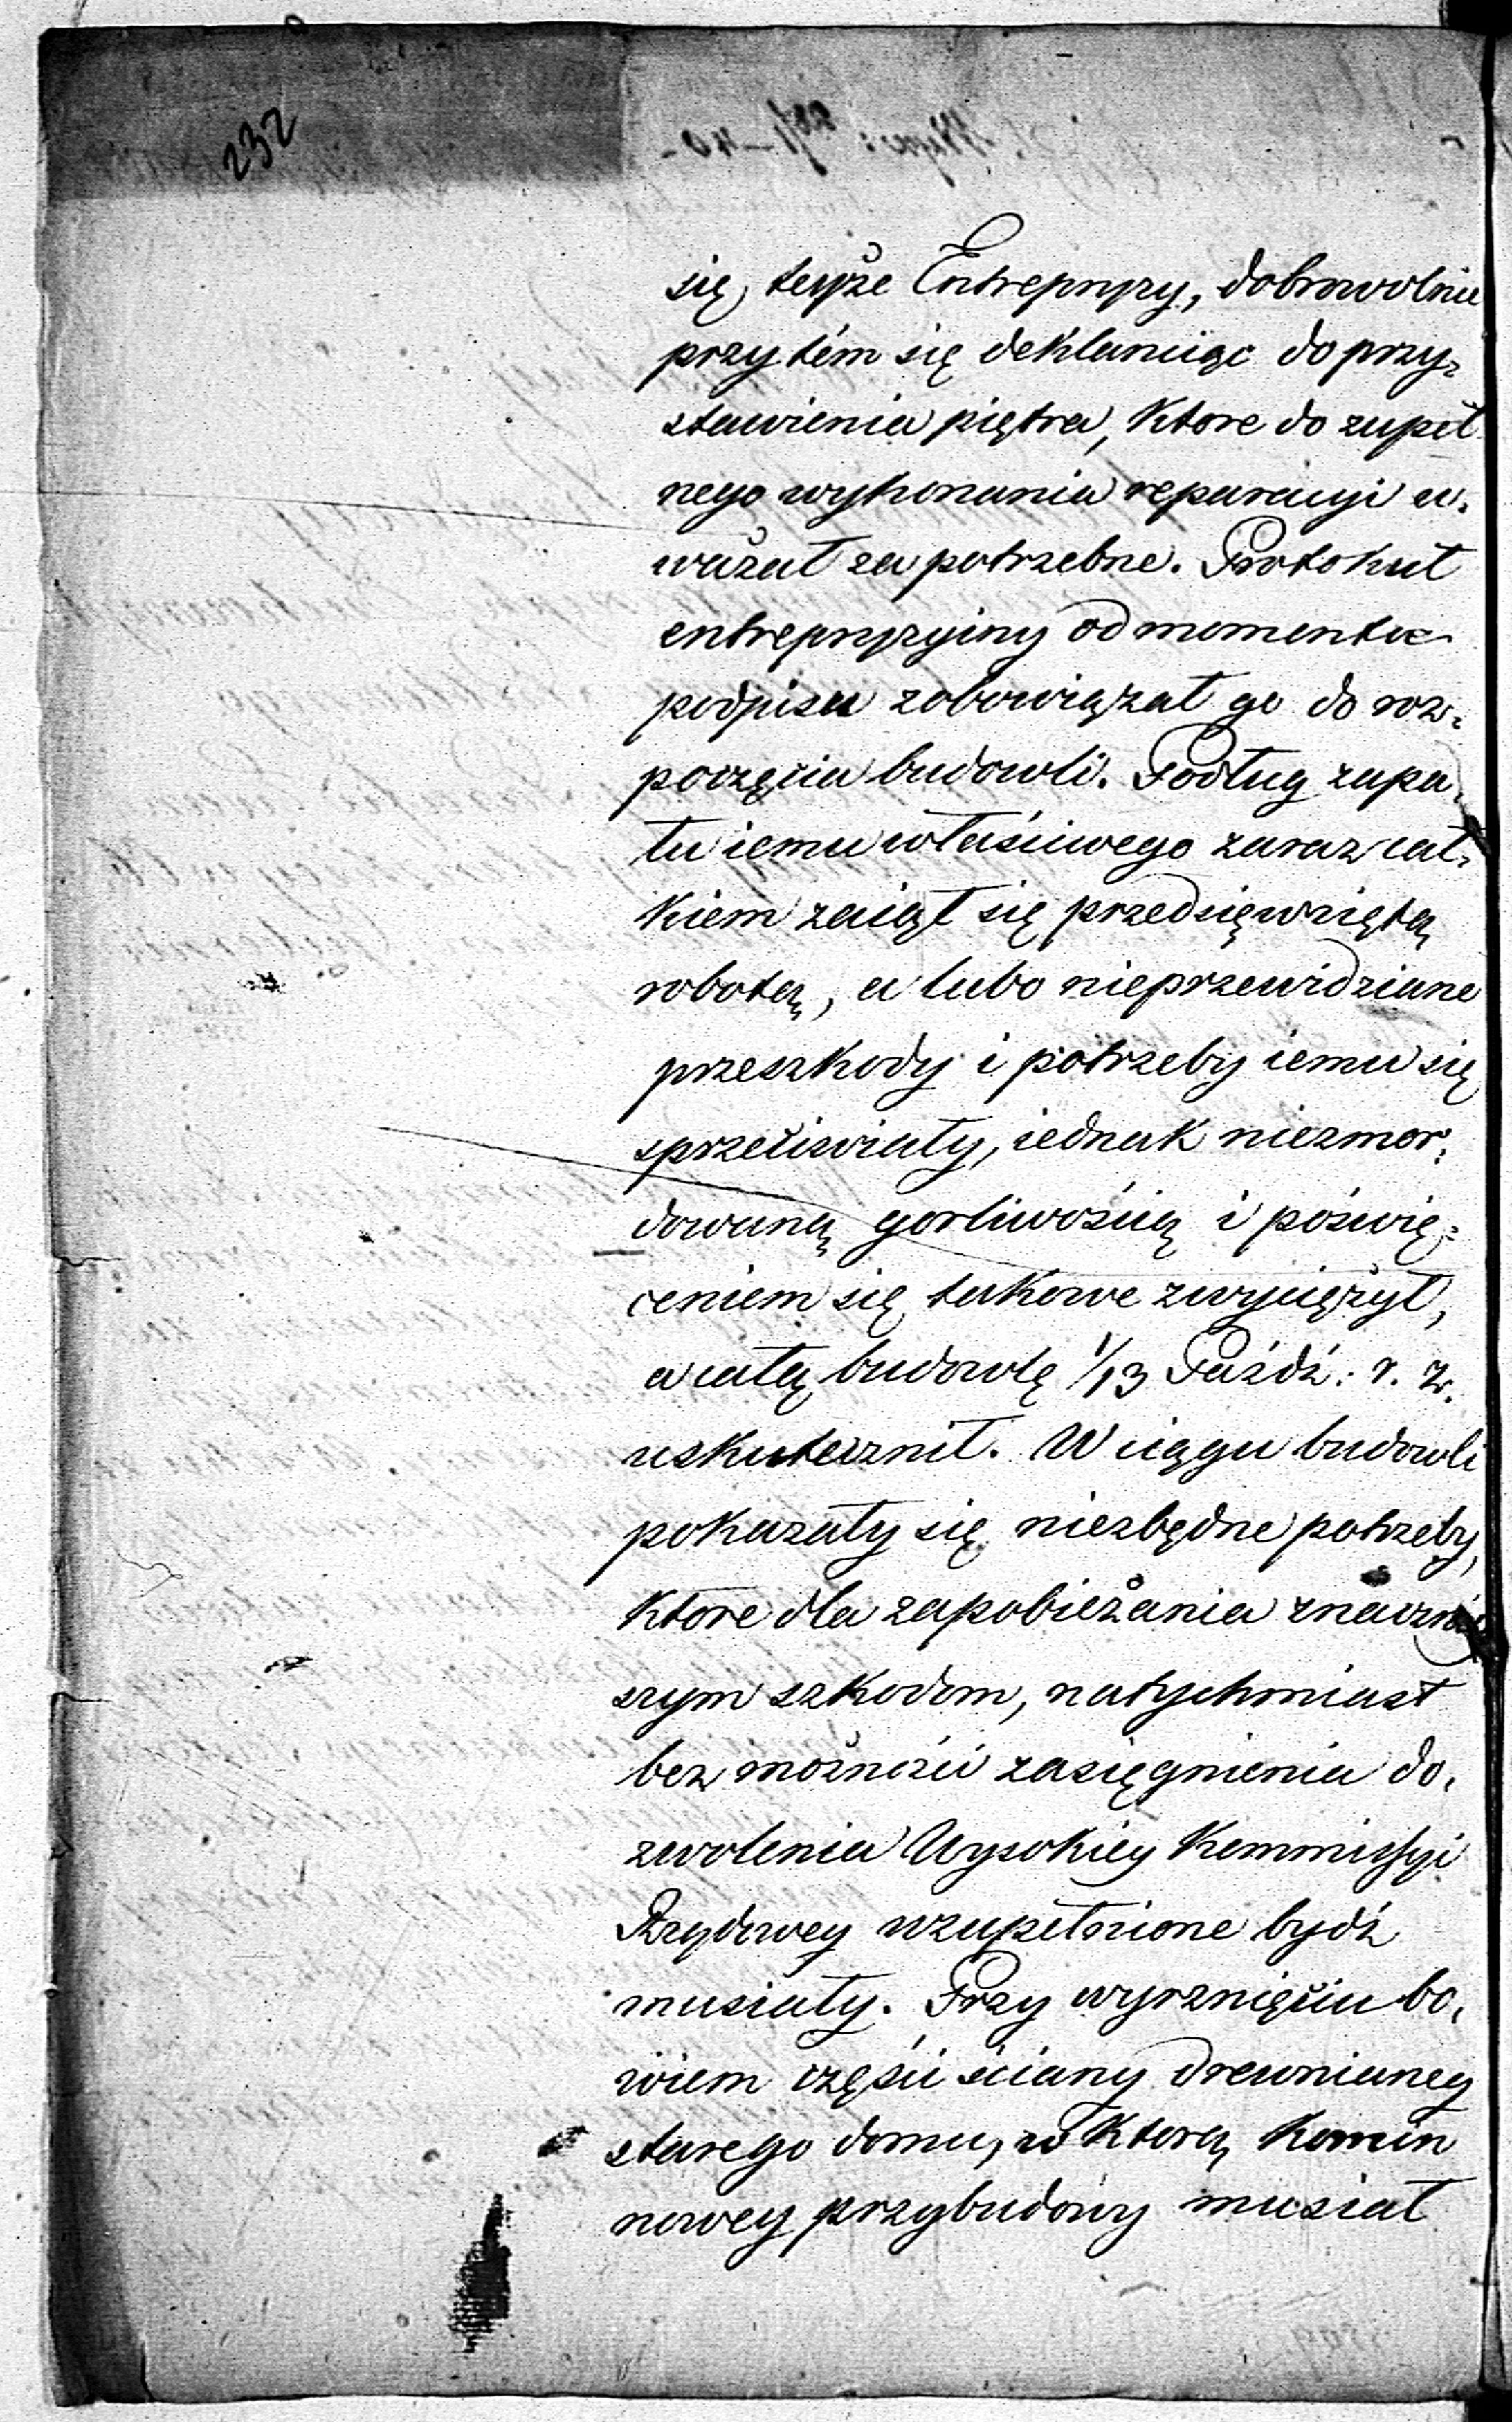 232
się teyże Entrepryzy, dobrowolnie
przytém się deklarując do przy-
stawienia piętra, które do zupeł-
nego wykonania reparacyi u-
ważał za potrzebne. Protokuł
entrepryzyiny od momentu
podpisu zobowiązał go do roz-
poczęcia budowli. Podług zapa-
łu iemu właściwego zaraz cał-
kiem zaiął się przedsięwziętą
robotą, a lubo nieprzewidziane
przeszkody i potrzeby iemu się
sprzeciwiały, iednak niezmor-
dowaną gorliwością i poświę-
ceniem się takowe zwyciężył,
a całą budowlę 1/13 Paźdź: r. z.
uskutecznił. W ciągu budowli
pokazały się niezbędne potrzeby,
które dla zapobieżania znaczniey-
szym szkodom, natychmiast
bez możności zasięgnienia do-
zwolenia Wysokiey Kommissyi
Rządowey uzupełnione bydź
musiały. Przy wyrznięciu bo-
wiem części ściany drewnianey
starego domu, w którą komin
nowey przybudowy musiał